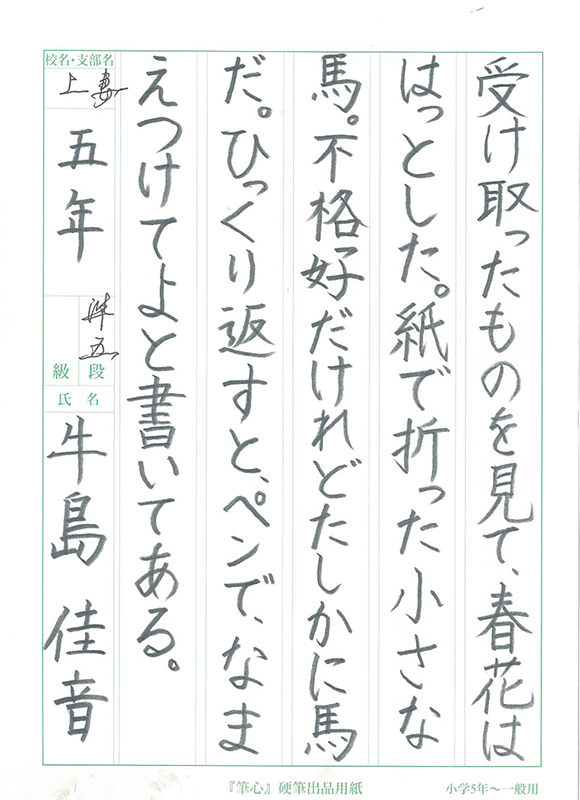 受け取ったものを見て、春花は
はっとした。紙で折った小さな
馬。不格好だけれどたしかに馬
だ。ひっくり返すと、ペンで、なま
えつけてよと書いてある。
校名・支部名
上妻
五年
準五
級 段
氏 名
牛島 佳音
『筆心』硬筆出品用紙
小学5年～一般用